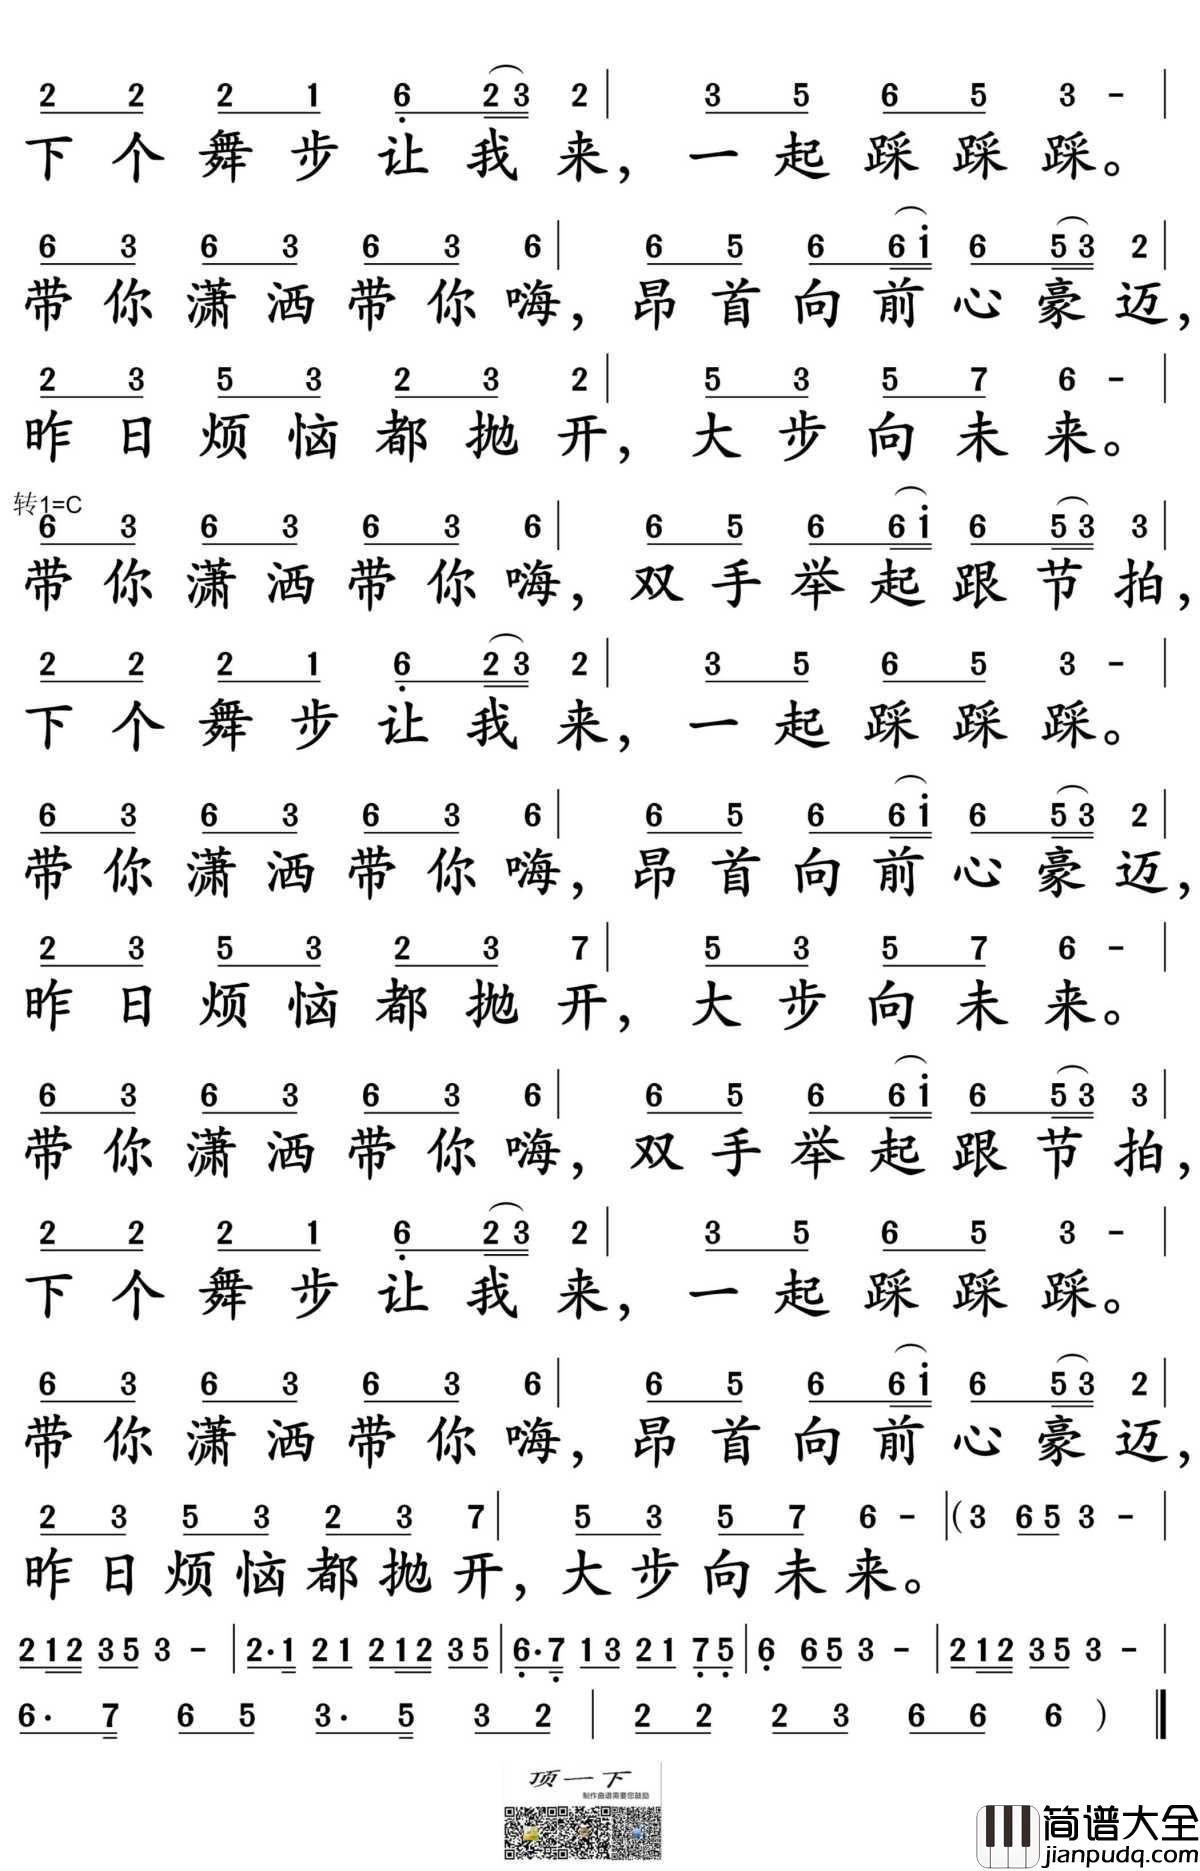 2 2 2 1 6 2 3 2 | 3 5 6 5 3 - |
下个舞步让我来，一起踩踩踩。
6 3 6 3 6 3 6 | 6 5 6 6 1 6 5 3 2 |
带你潇洒带你嗨，昂首向前心豪迈，
2 3 5 3 2 3 2 | 5 3 5 7 6 - |
昨日烦恼都抛开，大步向未来。
转1=C
6 3 6 3 6 3 6 | 6 5 6 6 1 6 5 3 3 |
带你潇洒带你嗨，双手举起跟节拍，
2 2 2 1 6 2 3 2 | 3 5 6 5 3 - |
下个舞步让我来，一起踩踩踩。
6 3 6 3 6 3 6 | 6 5 6 6 1 6 5 3 2 |
带你潇洒带你嗨，昂首向前心豪迈，
2 3 5 3 2 3 7 | 5 3 5 7 6 - |
昨日烦恼都抛开，大步向未来。
6 3 6 3 6 3 6 | 6 5 6 6 1 6 5 3 3 |
带你潇洒带你嗨，双手举起跟节拍，
2 2 2 1 6 2 3 2 | 3 5 6 5 3 - |
下个舞步让我来，一起踩踩踩。
6 3 6 3 6 3 6 | 6 5 6 6 1 6 5 3 2 |
带你潇洒带你嗨，昂首向前心豪迈，
2 3 5 3 2 3 7 | 5 3 5 7 6 - | (3 6 5 3 - |
昨日烦恼都抛开，大步向未来。
2 1 2 3 5 3 - | 2· 1 2 1 2 1 2 3 5 | 6· 7 1 3 2 1 7 5 | 6 6 5 3 - | 2 1 2 3 5 3 - |
6· 7 6 5 3· 5 3 2 | 2 2 2 3 6 6 6 ) ‖
顶一下
制作曲谱需要您鼓励
简谱大全
jianpudq.com